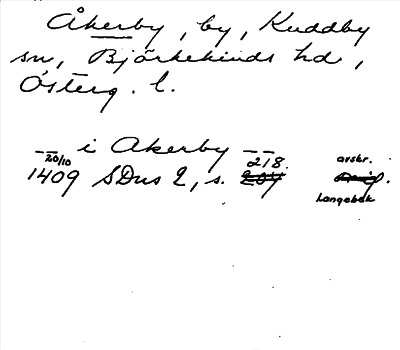 Åkerby, by, Kuddby
sn, Björkekinds hd,
Österg. l.
— — i Akerby — —
20/10 218. avskr.
1409 SDns 2, s. 207 orig.
Langebek